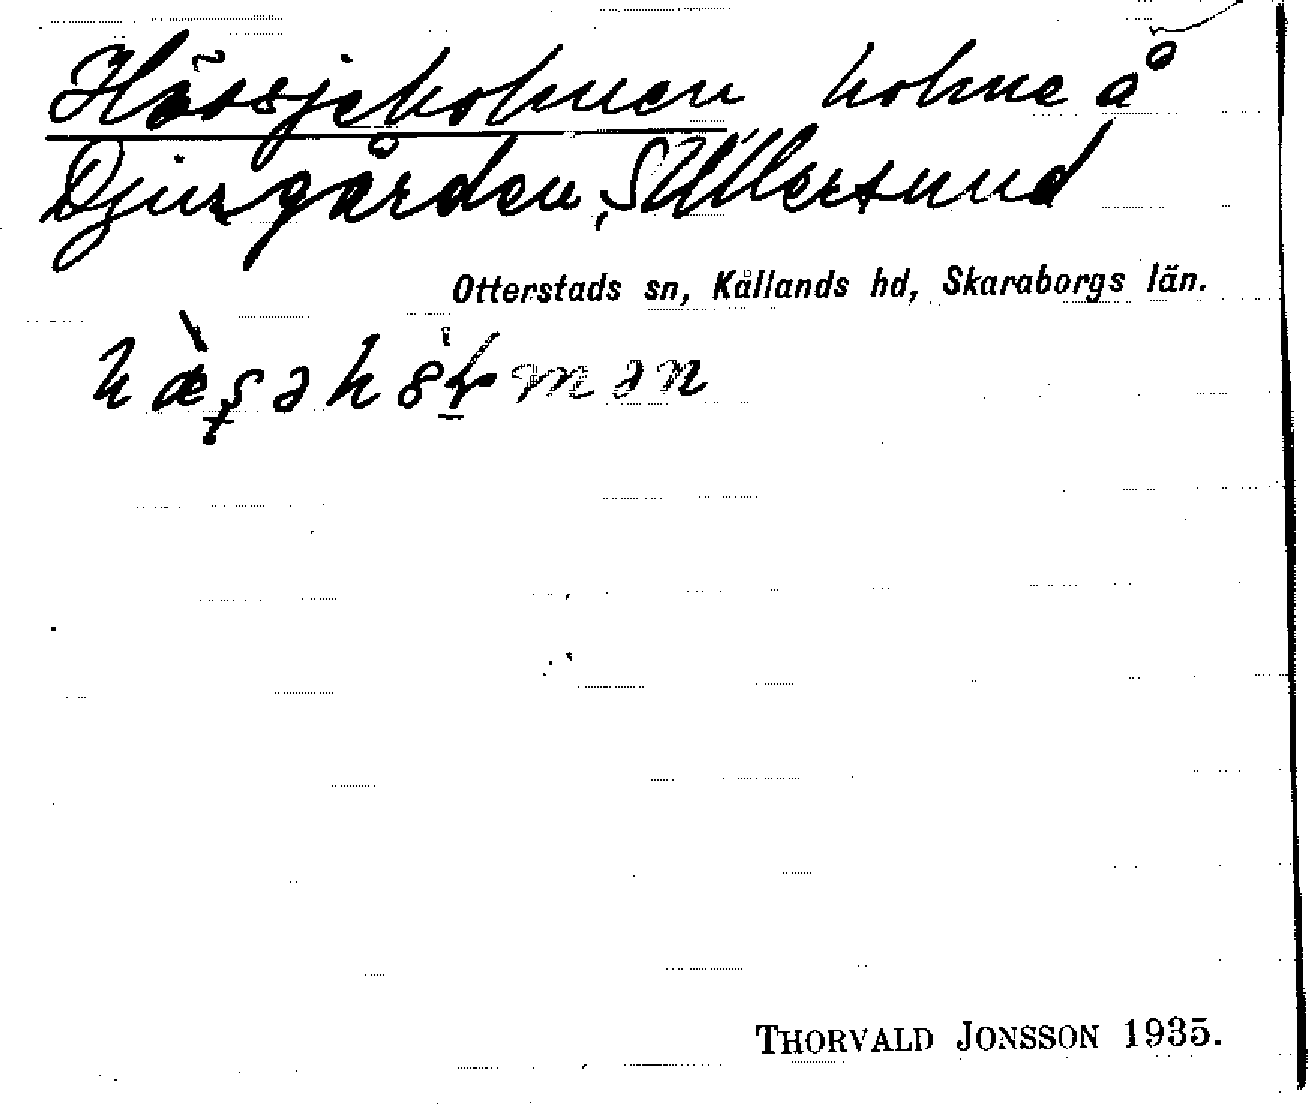 Hässjeholmen holme å
Djurgården, S Ullersund
Otterstads sn, Kållands hd, Skaraborgs län.
THORVALD JONSSON 1935.